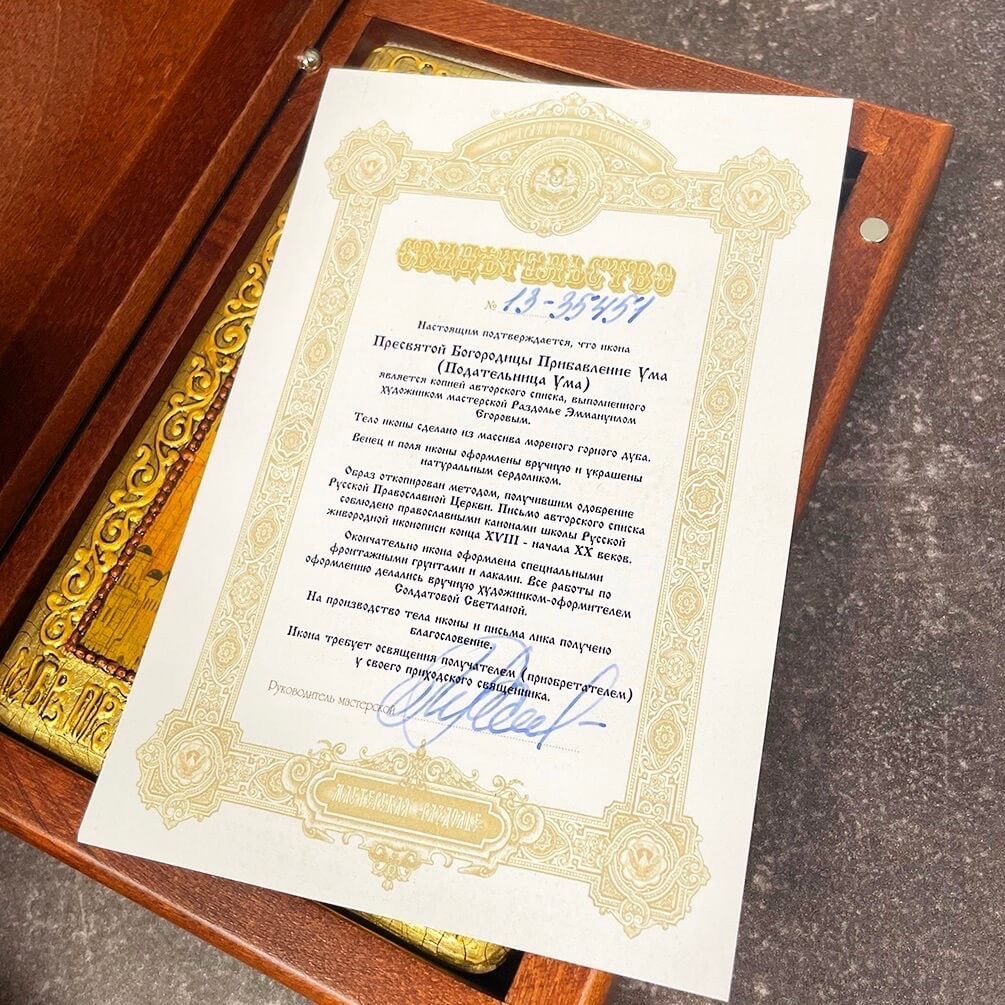 СВИДѢТЕЛЬСТВО
№ 13-35451
Настоящим подтверждается, что икона
Пресвятой Богородицы Прибавление Ума
(Подательница Ума)
является копией авторского списка, выполненного
художником мастерской Раздолье Эммануилом
Егоровым.
Тело иконы сделано из массива мореного горного дуба.
Венец и поля иконы оформлены вручную и украшены
натуральным сердоликом.
Образ откопирован методом, получившим одобрение
Русской Православной Церкви. Письмо авторского списка
соблюдено православными канонами школы Русской
живородной иконописи конца XVIII - начала XX веков.
Окончательно икона оформлена специальными
фронтажными грунтами и лаками. Все работы по
оформлению делались вручную художником-оформителем
Солдатовой Светланой.
На производство тела иконы и письма лика получено
благословение.
Икона требует освящения получателем (приобретателем)
у своего приходского священника.
Руководитель мастерской
МАСТЕРСКАЯ РАЗДОЛЬЕ